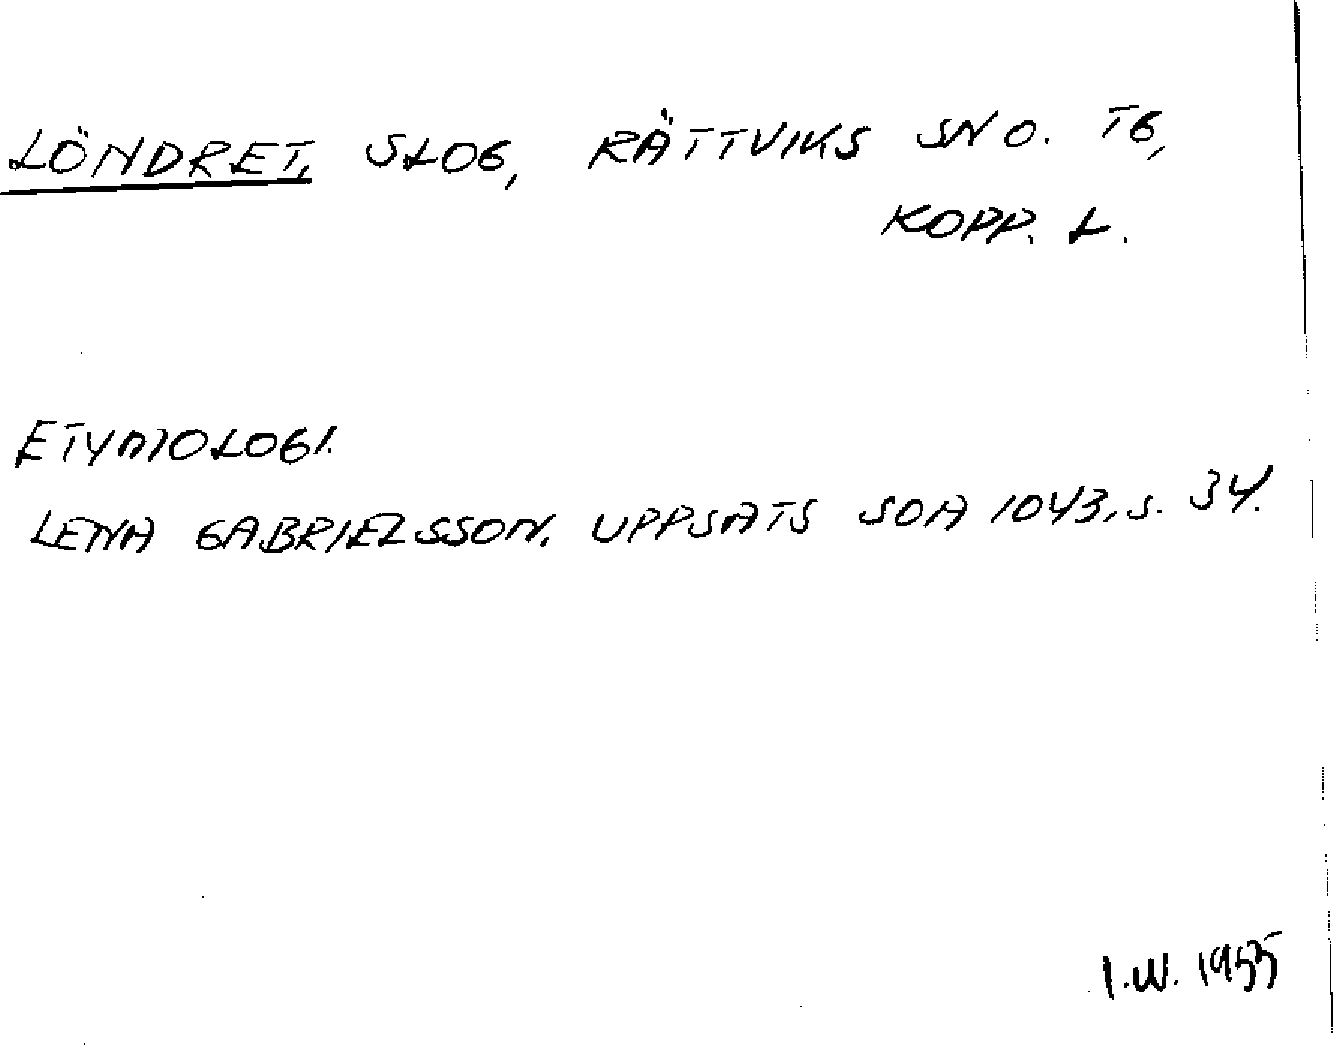 LÖNDRET, SLOG, RÄTTVIKS SN O. TG,
KOPP. L.
ETYMOLOGI.
LENA GABRIELSSON. UPPSATS SOA 1043, S. 34.
I.W. 1955